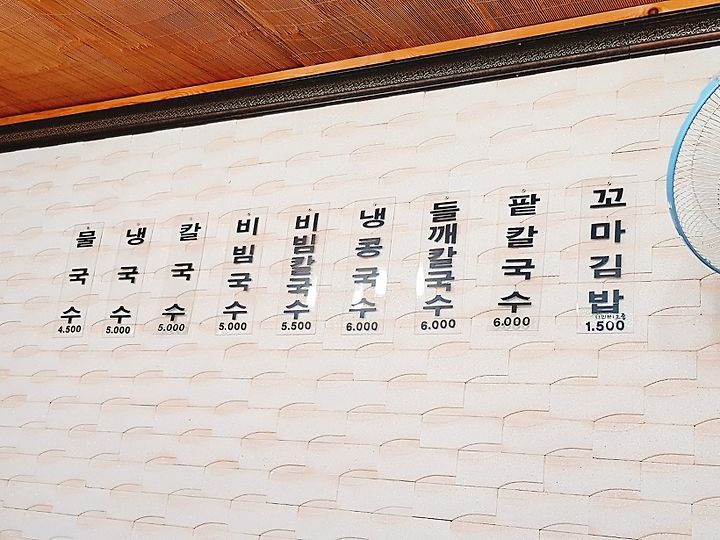 물국수
4.500
냉국수
5.000
칼국수
5.000
비빔국수
5.000
비빔칼국수
5.500
냉콩국수
6.000
들깨칼국수
6.000
팥칼국수
6.000
꼬마김밥
1.500